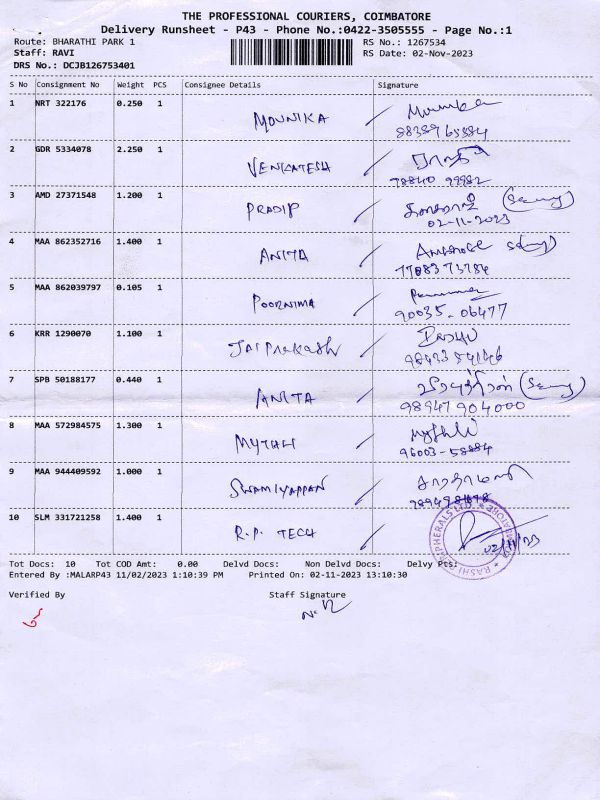 THE PROFESSIONAL COURIERS, COIMBATORE
Delivery Runsheet - P43 - Phone No.:0422-3505555 - Page No.:1
Route: BHARATHI PARK 1 RS No.: 1267534
Staff: RAVI RS Date: 02-Nov-2023
DRS No.: DCJB126753401
S No Consignment No Weight PCS Consignee Details Signature
1 NRT 322176 0.250 1 MOUNIKA Mounika
2 GDR 5334078 2.250 1 VENKATESH
78840 99982
3 AMD 27371548 1.200 1 PRADIP
02-11-2023
4 MAA 862352716 1.400 1 ANITA
77083 73784
5 MAA 862039797 0.105 1 POORNIMA
90035-06477
6 KRR 1290070 1.100 1 Jai Prakash
7 SPB 50188177 0.440 1 ANITA
98947 904000
8 MAA 572984575 1.300 1 MYTHILI Mythili
96003-58884
9 MAA 944409592 1.000 1 SWAMIYAPPAN
10 SLM 331721258 1.400 1 R.P. TECH
RASHI PERIPHERALS LTD. ★ COIMBATORE ★
02/11/23
Tot Docs: 10 Tot COD Amt: 0.00 Delvd Docs: Non Delvd Docs: Delvy Pts:
Entered By :MALARP43 11/02/2023 1:10:39 PM Printed On: 02-11-2023 13:10:30
Verified By Staff Signature